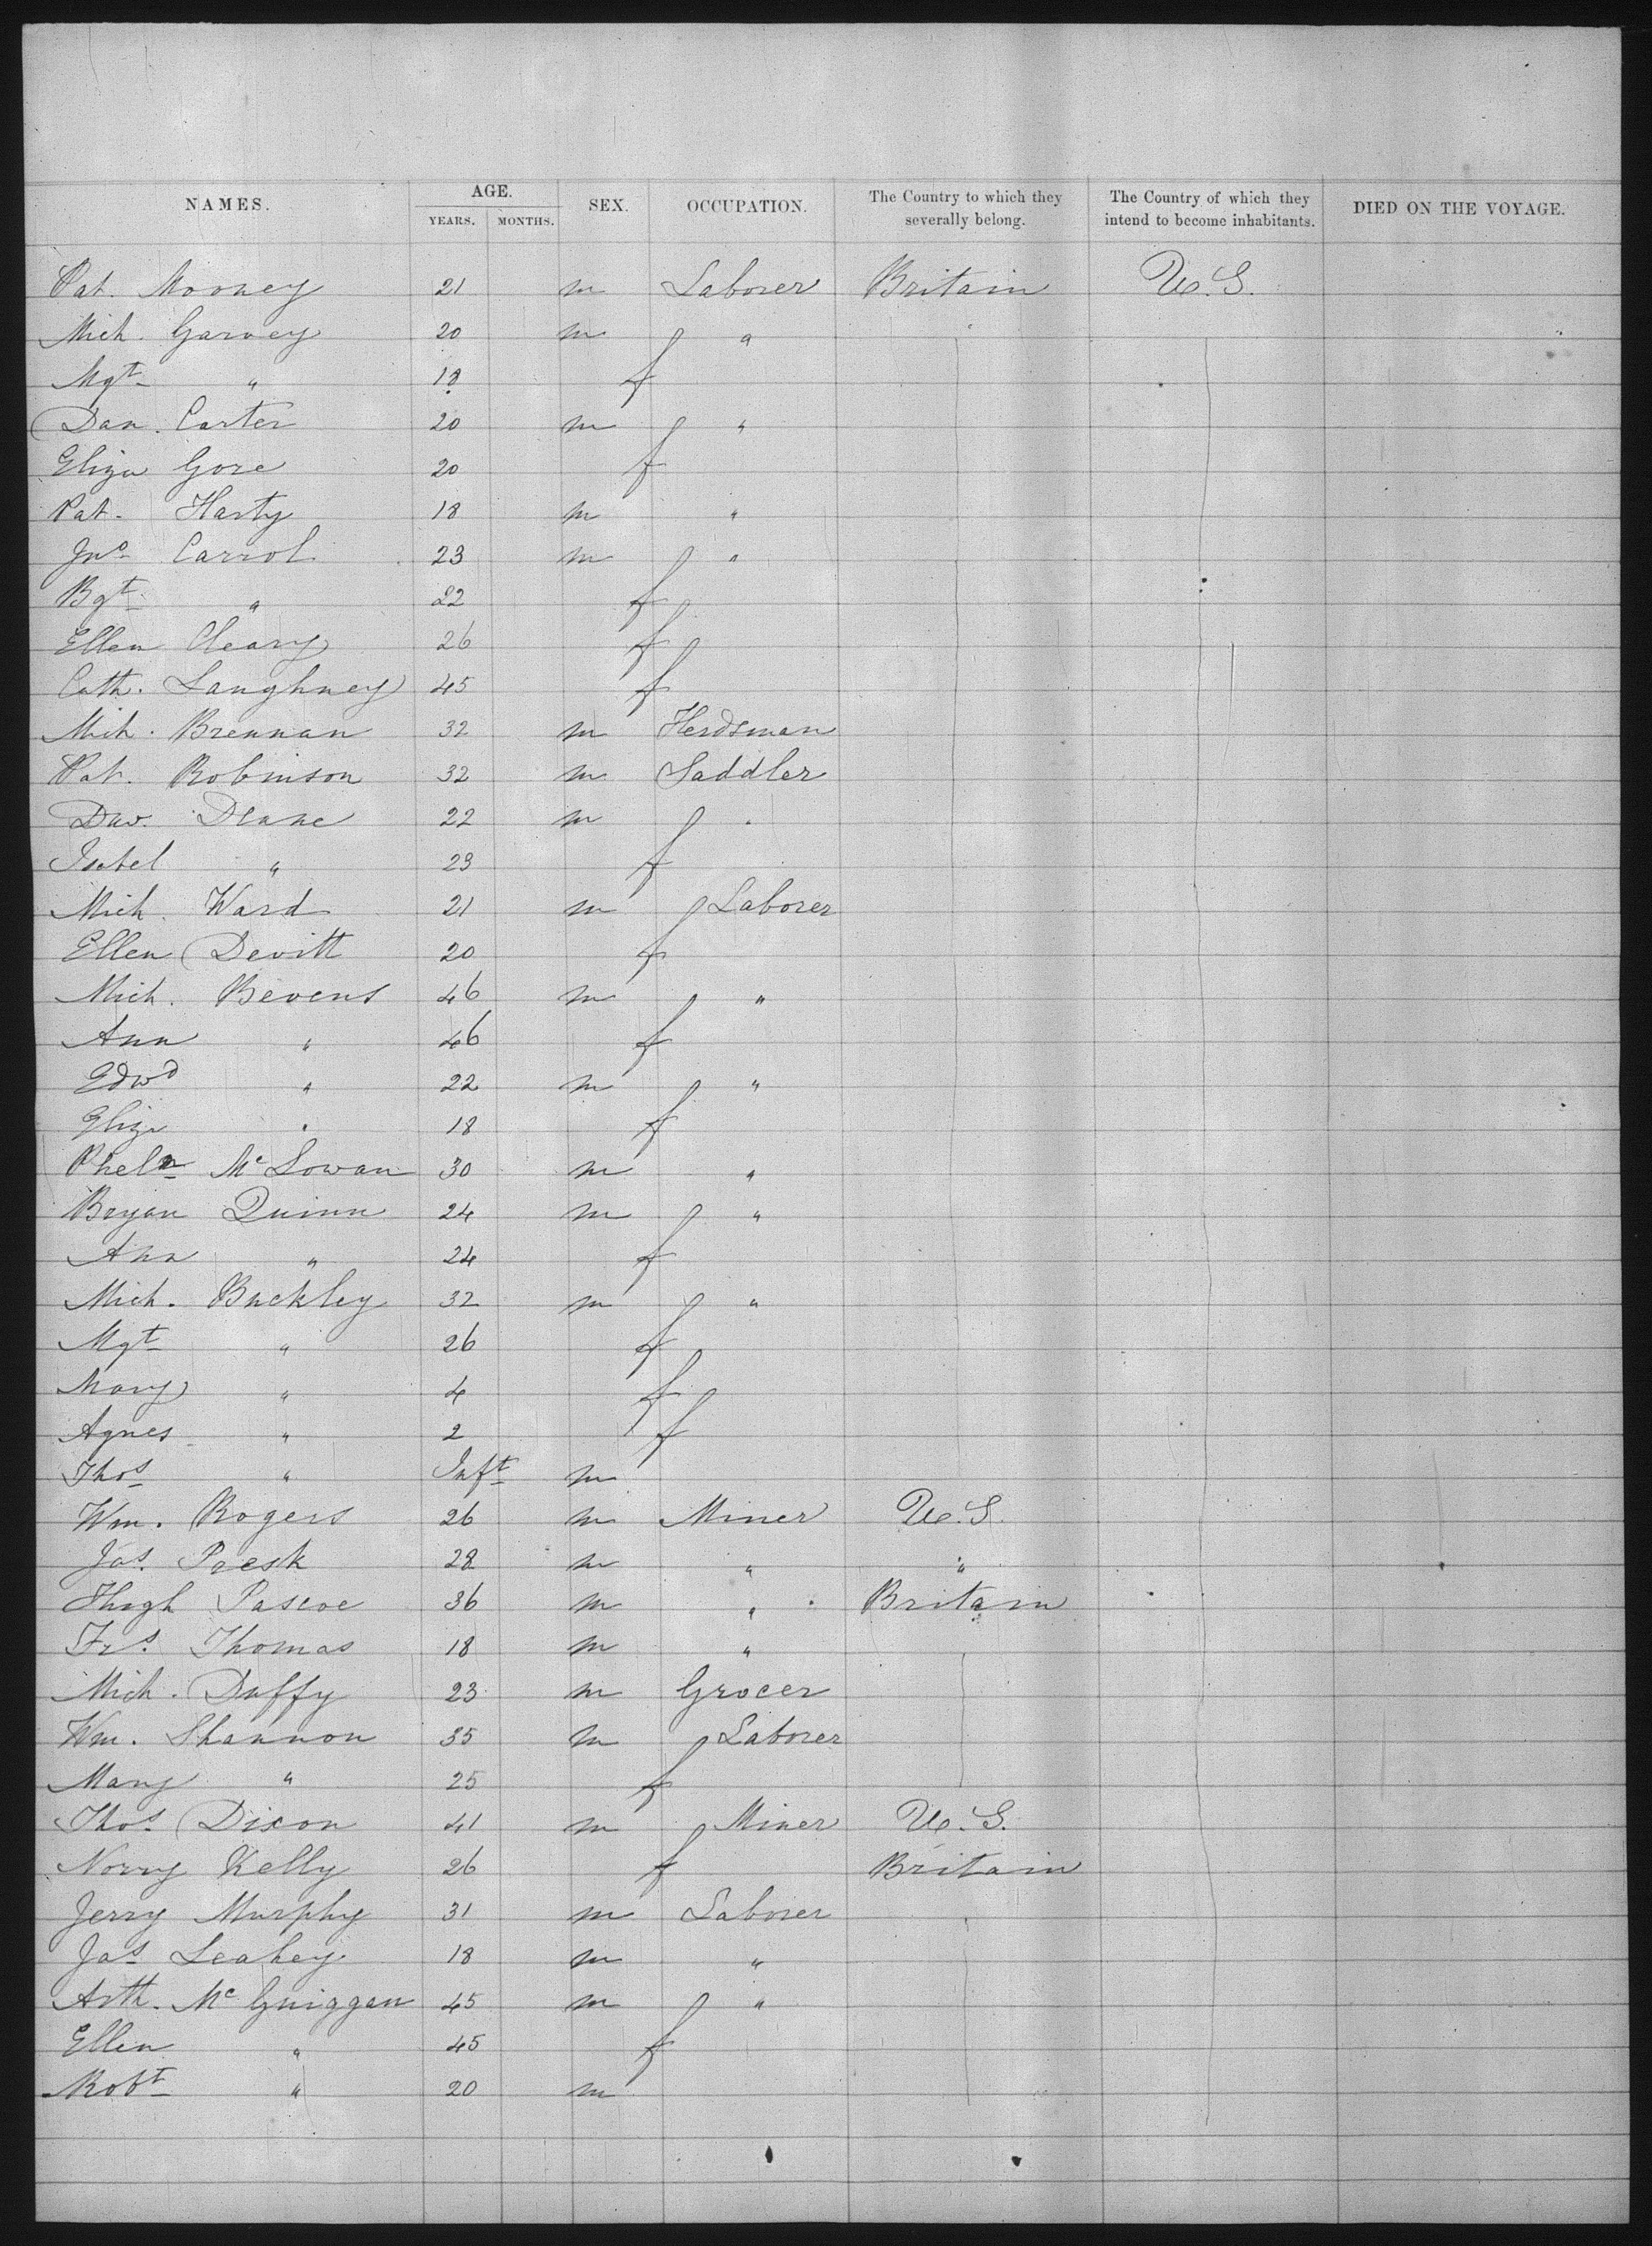 NAMES. AGE. SEX. OCCUPATION. The Country to which they severally belong. The Country of which they intend to become inhabitants. DIED ON THE VOYAGE.
YEARS. MONTHS.
Pat. Mooney 21 m Laborer Britain U.S.
Mich. Garvey 20 m "
Mgt " 18 f
Dan. Carter 20 m "
Eliza Gore 20 f
Pat. Harty 18 m "
Jno Carrol 23 m "
Bgt " 22 f
Ellen Cleary 26 f
Cath. Laughney 45 f
Mich. Brennan 32 m Herdsman
Pat. Robinson 32 m Saddler
Dav. Deane 22 m "
Isabel " 23 f
Mich. Ward 21 m Laborer
Ellen Devitt 20 f
Mich. Bevens 46 m "
Ann " 46 f
Edwd " 22 m "
Eliza " 18 f
Phelm McGowan 30 m "
Bryan Quinn 24 m "
Ann " 24 f
Mich. Buckley 32 m "
Mgt " 26 f
Mary " 4 f
Agnes " 2 f
Thos " Inft m
Wm. Rogers 26 m Miner U.S.
Jas. Presk 28 m " "
Hugh Pascoe 36 m " Britain
Frs. Thomas 18 m "
Mich. Duffy 23 m Grocer
Wm. Shannon 35 m Laborer
Mary " 25 f
Thos. Dixon 41 m Miner U.S.
Norry Kelly 26 f Britain
Jerry Murphy 31 m Laborer
Jas Leahey 18 m "
Arth. McGuiggan 45 m "
Ellen " 45 f
Robt " 20 m